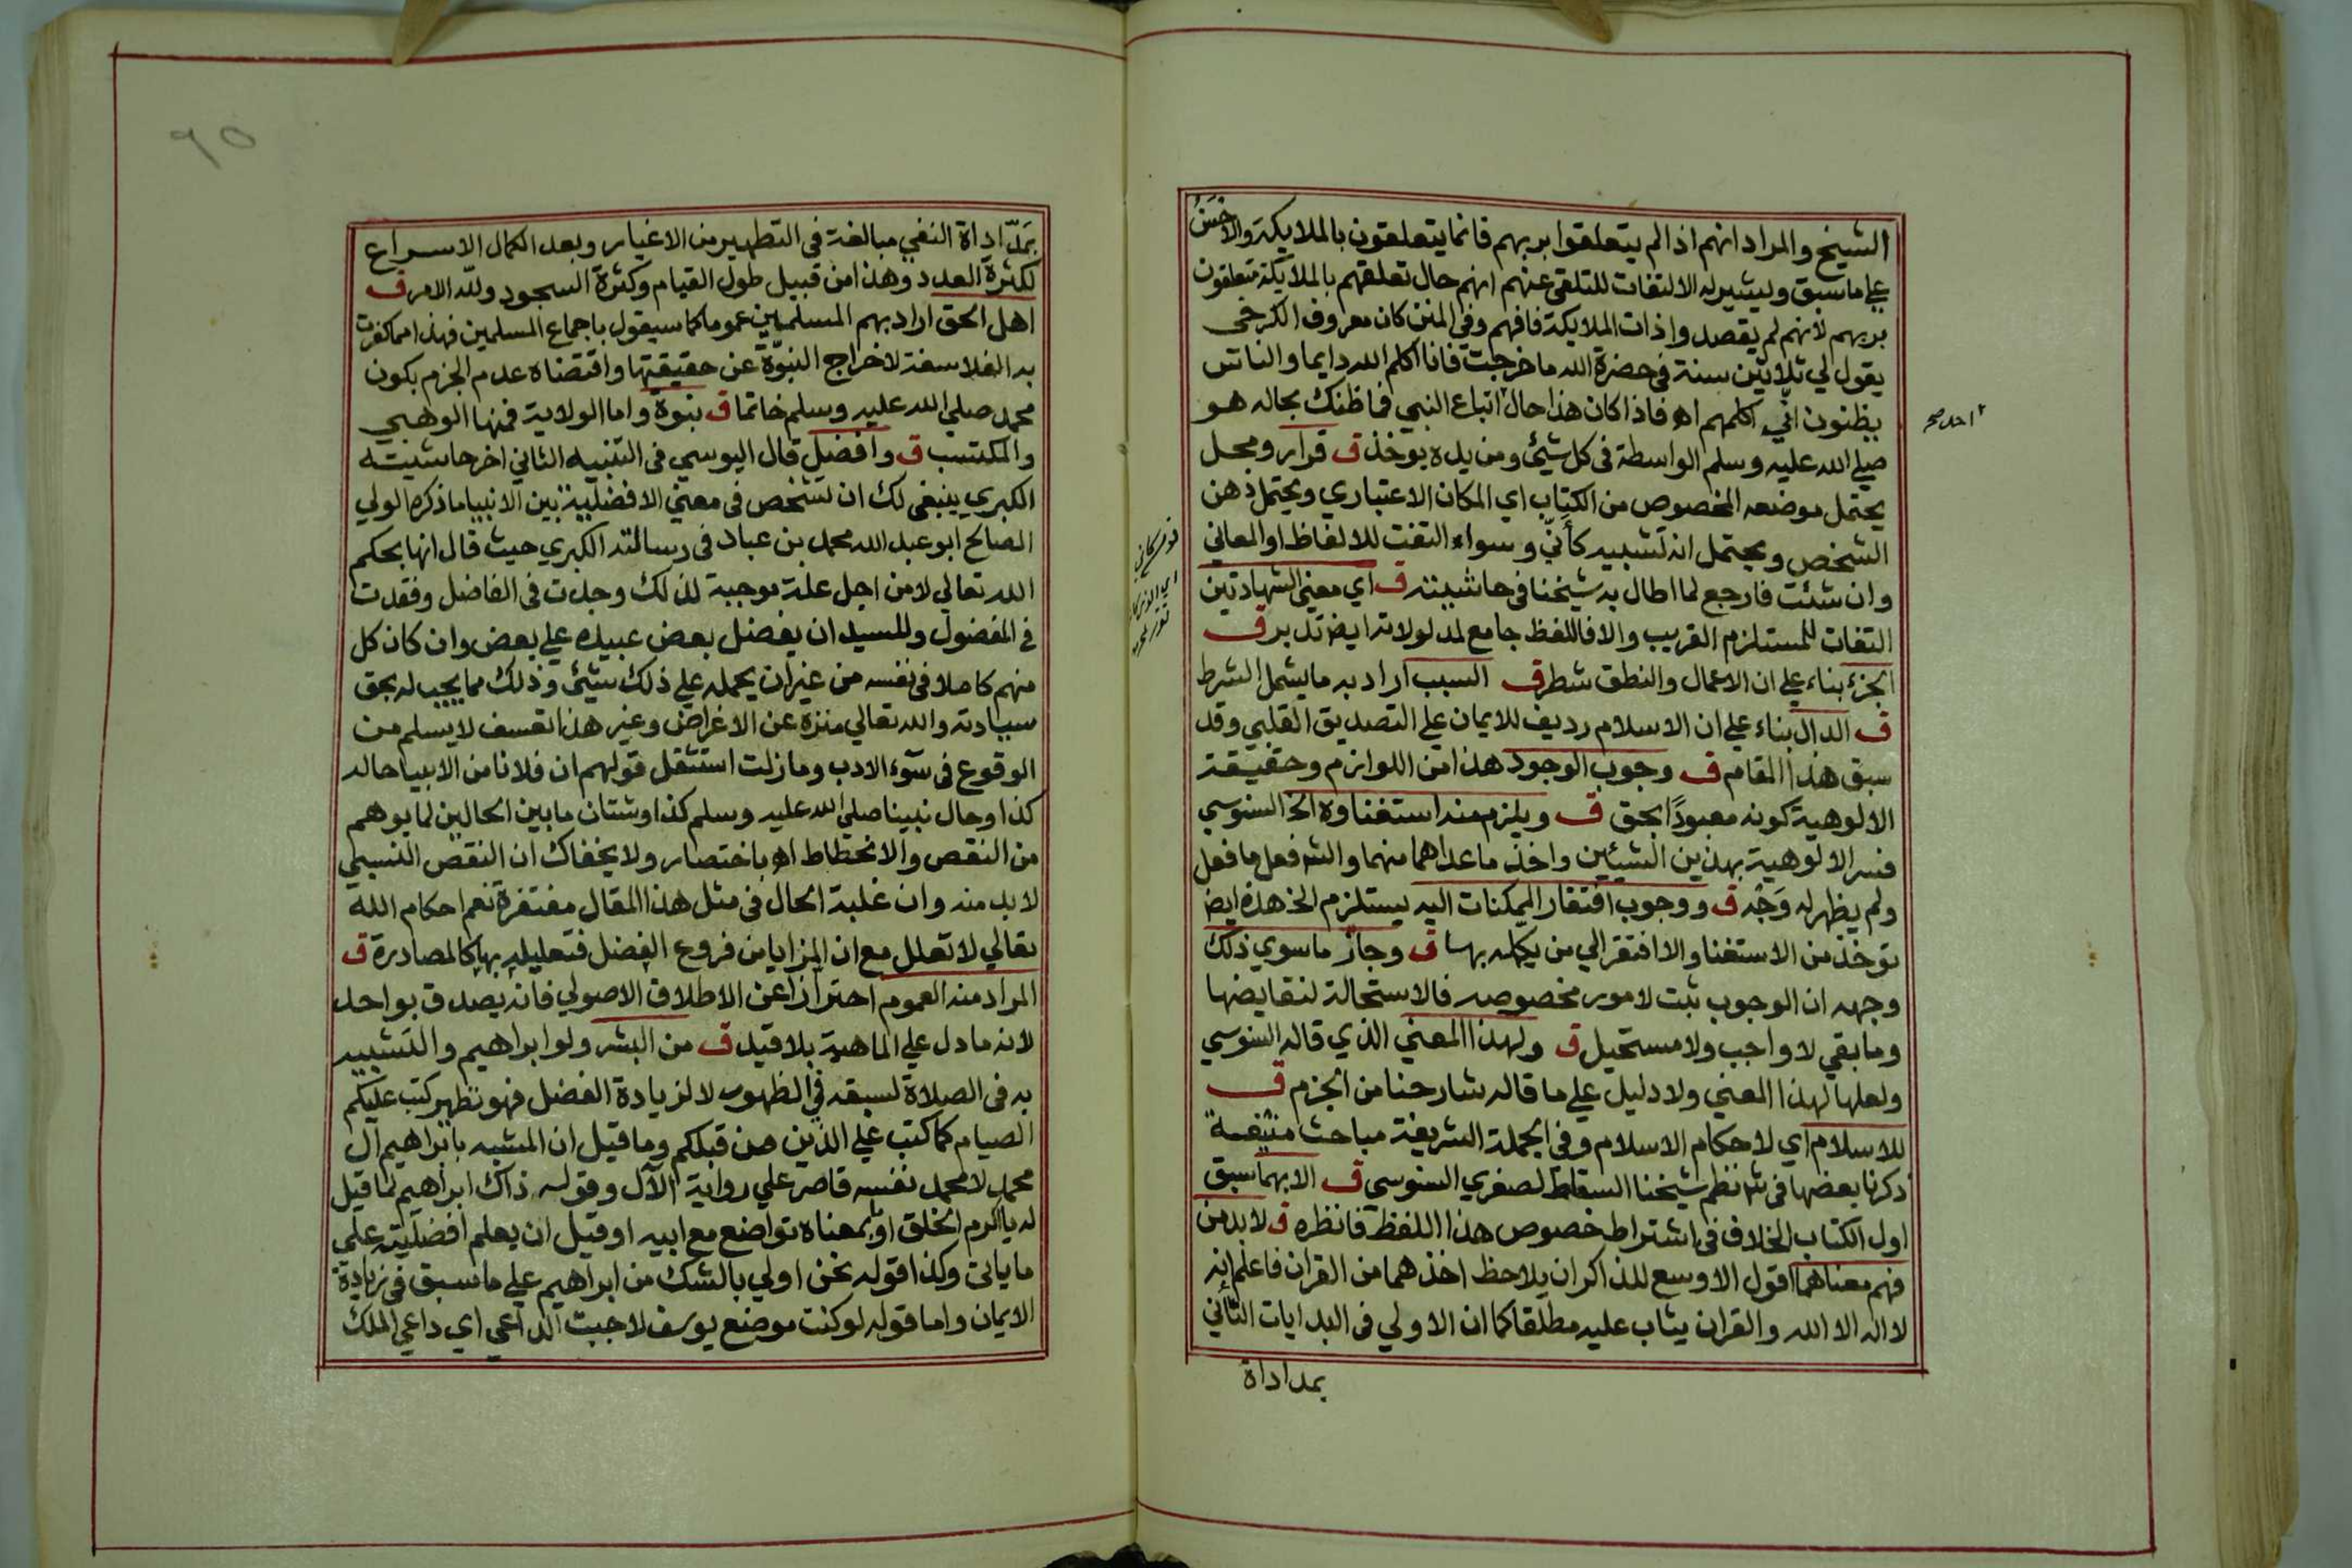 الشيخ والمراد انهم اذا لم يتعلقوا بربهم فانما يتعلقون بالملايكة والاحسن
علي ما سبق ويشير له الالتفات للتلقي عنهم انهم حال تعلقهم بالملايكة متعلقون
بربهم لانهم لم يقصدوا ذات الملايكة فافهم وفي المنن كان معروف الكرخي
يقول لي ثلاثين سنة في حضرة الله ما خرجت فانا اكلم الله دايما والناس
يظنون اني اكلمهم اه فاذا كان هذا حال اتباع النبي فما ظنك بحاله هو
صلي الله عليه وسلم الواسطة في كل شيئ ومن يده يوخذ ق قرار ومحل
يحتمل موضعه المخصوص من الكتاب اي المكان الاعتباري ويحتمل ذهن
الشخص ويحتمل انه تشبيه كأنّي وسواء التفت للالفاظ او المعاني
وان شئت فارجع لما اطال به شيخنا في حاشيته ق اي معني الشهادتين
التفات للمستلزم القريب والا فاللفظ جامع لمدلولاته ايض تدبر ق
الجزء بناء علي ان الاعمال والنطق شطر ق السبب اراد به ما يشمل الشرط
ق الدال بناء علي ان الاسلام رديف للايمان علي التصديق القلبي وقد
سبق هذا المقام ق وجوب الوجود هذا من اللوازم وحقيقة
الالوهية كونه معبودًا بحق ق ويلزم منه استغناوه الخ السنوسي
فسر الالوهية بهذين الشيئين واخذ ما عداهما منهما والشه فعل ما فعل
ولم يظهر له وَجْه ق ووجوب افتقار الممكنات اليه يستلزم الخ هذه ايض
توخذ من الاستغنا والا افتقر الي من يكمله بها ق وجاز ما سوي ذلك
وجهه ان الوجوب ثبت لامور مخصوصه فالاستحالة لنقايضها
وما بقي لا واجب ولا مستحيل ق ولهذا المعني الذي قاله السنوسي
ولعلها لهذا المعني ولا دليل علي ما قاله شارحنا من الجزم ق
للاسلام اي لاحكام الاسلام وفي الجملة الشريفة مباحث منيفة
ذكرنا بعضها في شه نظم شيخنا السقاط لصغري السنوسي ق الا بهما سبق
اول الكتاب الخلاف في اشتراط خصوص هذا اللفظ فانظره ق لا بد من
فهم معناهما اقول الاوسع للذاكر ان يلاحظ اخذهما من القران فاعلم انه
لا اله الا الله والقران يثاب عليه مطلقا كما ان الاولي في البدايات التاني
بمد اداة
بمَدّ اداة النفي مبالغة في التطهير من الاغيار وبعد الكمال الاسراع
لكثرة العدد وهذا من قبيل طول القيام وكثرة السجود ولله الامر ق
اهل الحق اراد بهم المسلمين عموما كما سيقول باجماع المسلمين فهذا مما كفرت
به الفلاسفة لاخراج النبوّة عن حقيقتها واقتضاه عدم الجزم بكون
محمد صلي الله عليه وسلم خاتما ق نبوة واما الولاية فمنها الوهبي
والمكتسب ق وافضل قال اليوسي في التنبيه الثاني اخر حاشيته
الكبري ينبغي لك ان تشخص في معني الافضلية بين الانبيا ما ذكره الولي
الصالح ابو عبد الله محمد بن عباد في رسالته الكبري حيث قال انها بحكم
الله تعالي لا من اجل علة موجبة لذلك وجدت في الفاضل وفقدت
في المفضول وللسيد ان يفضل بعض عبيده علي بعض وان كان كل
منهم كاملا في نفسه من غير ان يحمله علي ذلك شيئ وذلك مما يجب له بحق
سيادته والله تعالي منزه عن الاغراض وغير هذا تعسف لا يسلم من
الوقوع في سوء الادب وما زلت استثقل قولهم ان فلانا من الانبيا حاله
كذا وحال نبينا صلي الله عليه وسلم كذا وشتان ما بين الحالين لما يوهم
من النقص والانحطاط اه باختصار ولا يخفاك ان النقص النسبي
لا بد منه وان غلبة الحال في مثل هذا المقال مغتفرة نعم احكام الله
تعالي لا تعلل مع ان المزايا من فروع الفضل فتعليله بها كالمصادرة ق
المراد منه العموم احترازا عن الاطلاق الاصولي فانه يصدق بواحد
لانه ما دل علي الماهية بلا قيد ق من البشر ولو ابراهيم والتشبيه
به في الصلاة لسبقه في الظهور لا لزيادة الفضل فهو نظير كتب عليكم
الصيام كما كتب علي الذين من قبلكم وما قيل ان المشبه بابراهيم آل
محمد لا محمد نفسه قاصر علي رواية الآل وقوله ذاك ابراهيم لما قيل
له يا اكرم الخلق او بمعناه تواضع مع ابيه او قيل ان يعلم افضليته علي
ما ياتي وكذا قوله نحن اولي بالشك من ابراهيم علي ما سبق في زيادة
الايمان واما قوله لو كنت موضع يوسف لاجبت الداعي اي داعي الملك
٩٥